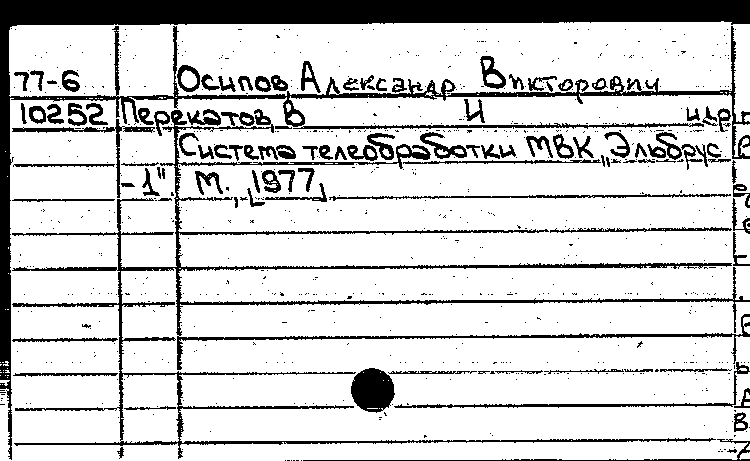 77-6 Осипов, Александр Викторович
10252 Перекатов, В И и др.
Система телеобработки МВК „Эльбрус
-1". М., [1977]